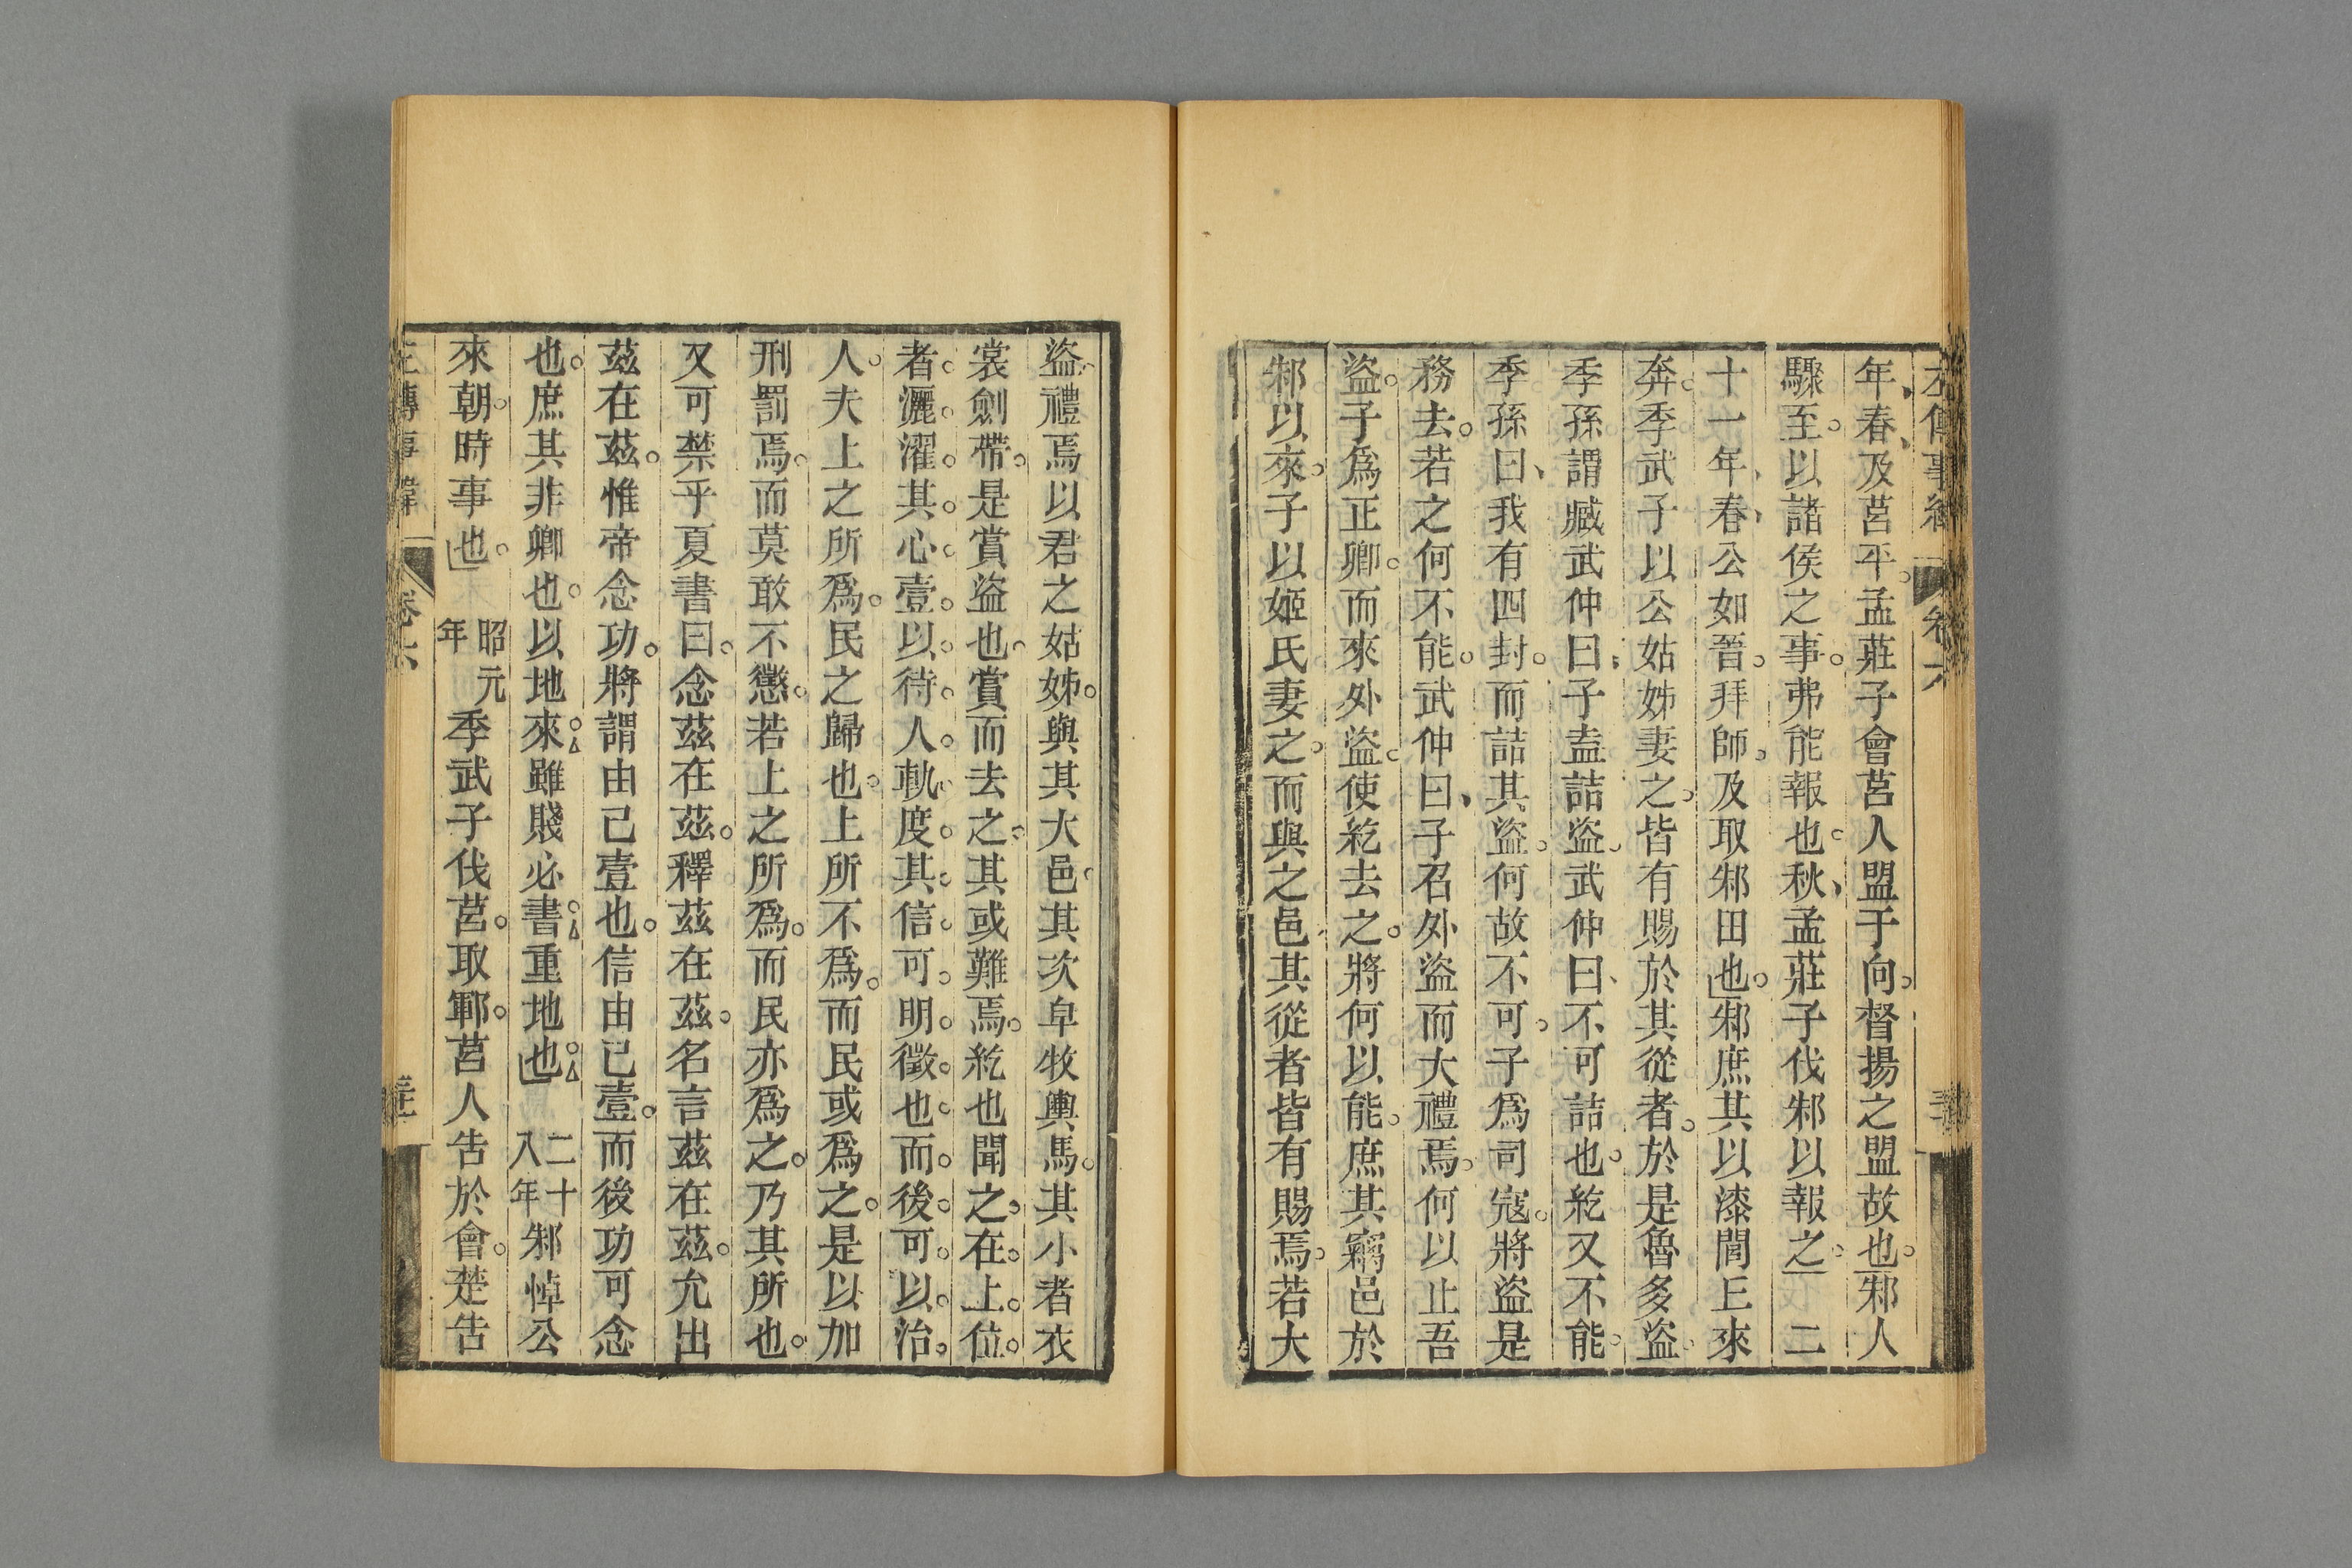 左傳事緯 卷六
年春及莒平孟莊子會莒人盟于向督揚之盟故也邾人
驟至以諸侯之事弗能報也秋孟莊子伐邾以報之 二
十一年春公如晉拜師及取邾田也邾庶其以漆閭丘來
奔季武子以公姑姊妻之皆有賜於其從者於是魯多盜
季孫謂臧武仲曰子盍詰盜武仲曰不可詰也紇又不能
季孫曰我有四封而詰其盜何故不可子爲司寇將盜是
務去若之何不能武仲曰子召外盜而大禮焉何以止吾
盜子爲正卿而來外盜使紇去之將何以能庶其竊邑於
邾以來子以姬氏妻之而與之邑其從者皆有賜焉若大
盜禮焉以君之姑姊與其大邑其次皁牧輿馬其小者衣
裳劍帶是賞盜也賞而去之其或難焉紇也聞之在上位
者灑濯其心壹以待人軌度其信可明徵也而後可以治
人夫上之所爲民之歸也上所不爲而民或爲之是以加
刑罰焉而莫敢不懲若上之所爲而民亦爲之乃其所也
又可禁乎夏書曰念茲在茲釋茲在茲名言茲在茲允出
茲在茲惟帝念功將謂由己壹也信由己壹而後功可念
也庶其非卿也以地來雖賤必書重地也 二十八年邾悼公
來朝時事也 昭元年季武子伐莒取鄆莒人告於會楚告
左傳事緯 卷六